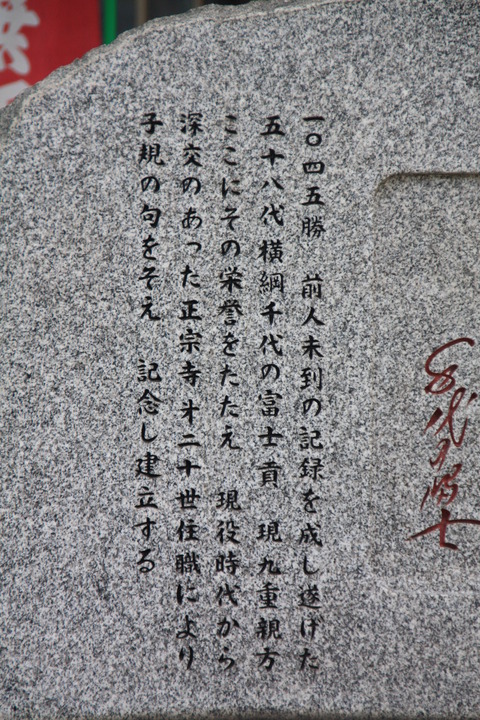 一〇四五勝　前人未到の記録を成し遂げた
五十八代横綱千代の富士貢　現九重親方
ここにその栄誉をたたえ　現役時代から
深交のあった正宗寺才二十世住職により
子規の句をそえ　記念し建立する
千代の富士